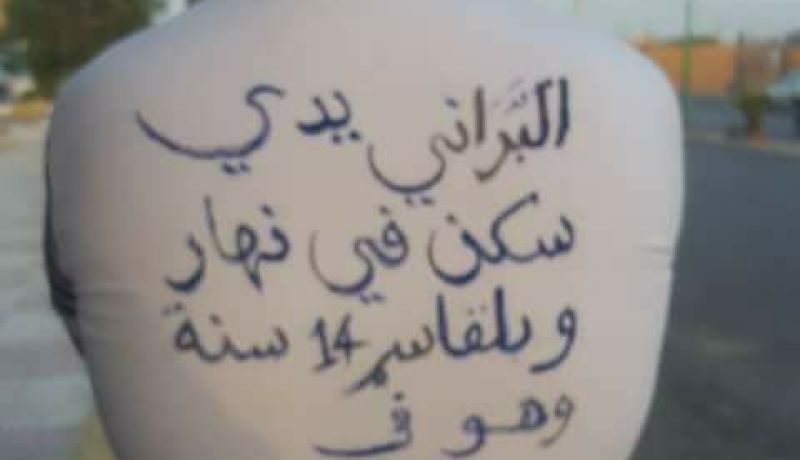 البَرَاني يدي
سكن في نهار
وبلقاسم 14 سنة
وهو في